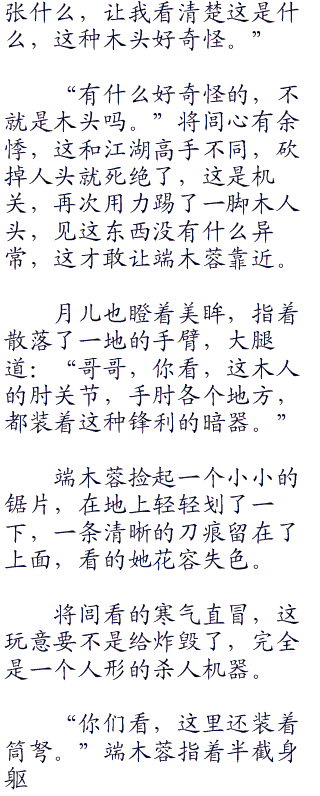 张什么，让我看清楚这是什
么，这种木头好奇怪。”
“有什么好奇怪的，不
就是木头吗。”将闾心有余
悸，这和江湖高手不同，砍
掉人头就死绝了，这是机
关，再次用力踢了一脚木人
头，见这东西没有什么异
常，这才敢让端木蓉靠近。
月儿也瞪着美眸，指着
散落了一地的手臂，大腿
道：“哥哥，你看，这木人
的肘关节，手肘各个地方，
都装着这种锋利的暗器。”
端木蓉捡起一个小小的
锯片，在地上轻轻划了一
下，一条清晰的刀痕留在了
上面，看的她花容失色。
将闾看的寒气直冒，这
玩意要不是给炸毁了，完全
是一个人形的杀人机器。
“你们看，这里还装着
筒弩。”端木蓉指着半截身
躯